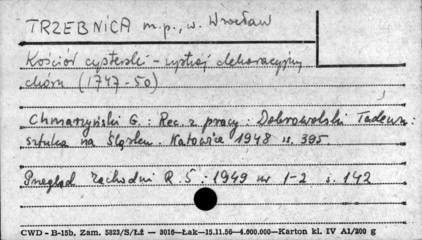 TRZEBNICA m.p., w. Wrocław
Kościół cysterski - wystrój dekoracyjny
chóru (1747-50)
Chmarzyński G.: Rec. z pracy: Dobrowolski Tadeusz:
sztuka na Śląsku. Katowice 1948 s. 395.
Przegląd Zachodni R. 5: 1949 nr 1-2 s. 142
CWD - B-15b, Zam. 5823/S/ŁŻ — 3016—Łak—15.11.56—4.000.000—Karton kl. IV A1/200 g